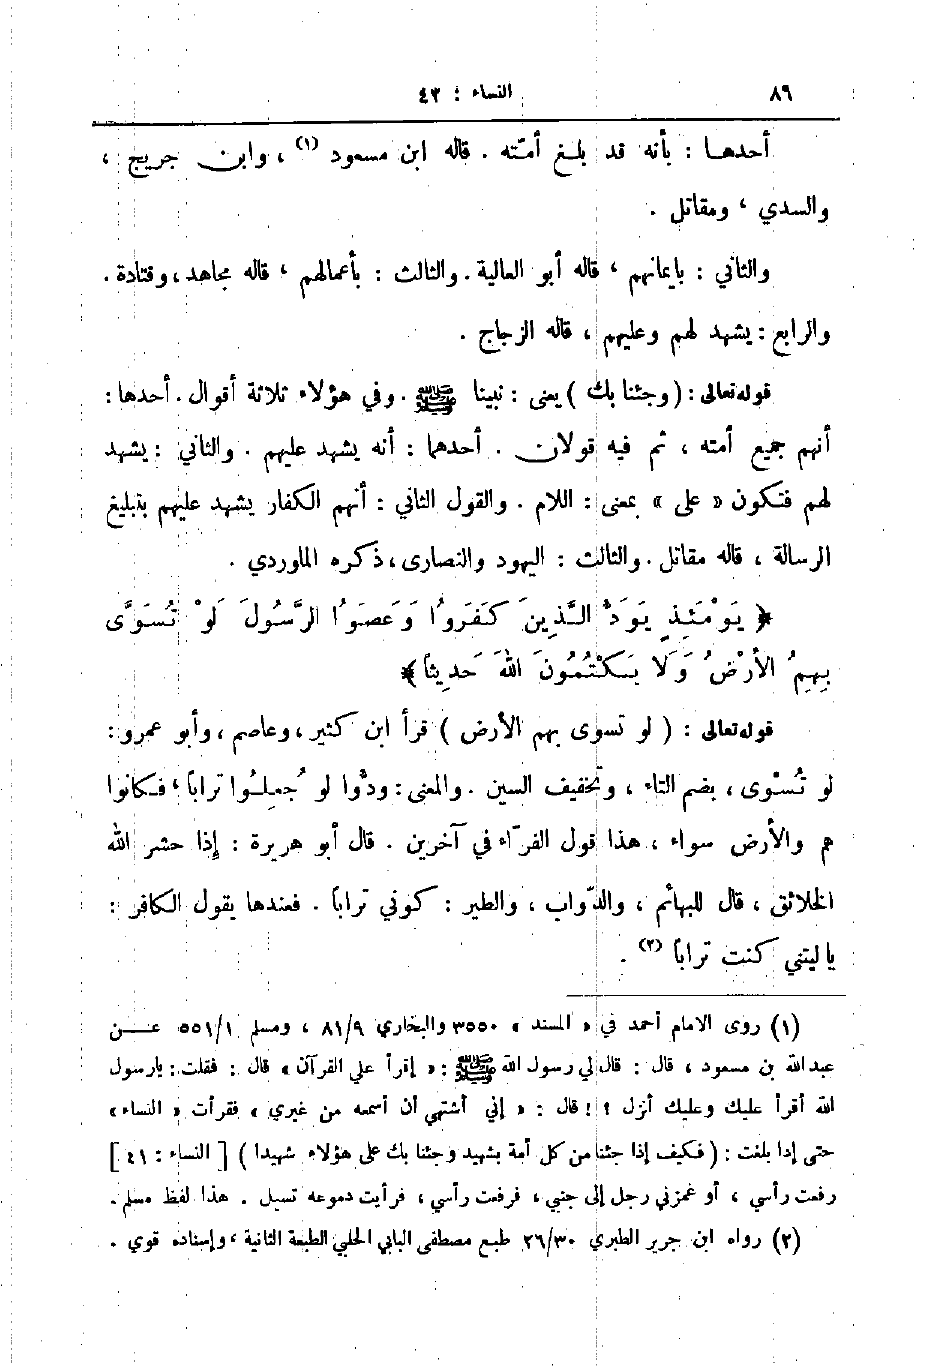 ٨٩
النساء : ٤٣
أحدها : بأنه قد بلغ أمته . قاله ابن مسعود (١) ، وابن جريج ،
والسدي ، ومقاتل .
والثاني : بايمانهم ، قاله أبو العالية . والثالث : بأعمالهم ، قاله مجاهد ، وقتادة .
والرابع : يشهد لهم وعليهم ، قاله الزجاج .
قوله تعالى : ( وجئنا بك ) يعنى : نبينا ﷺ . وفي هؤلاء ثلاثة أقوال . أحدها :
أنهم جميع أمته ، ثم فيه قولان . أحدهما : أنه يشهد عليهم . والثاني : يشهد
لهم فتكون « على » بمعنى : اللام . والقول الثاني : أنهم الكفار يشهد عليهم بتبليغ
الرسالة ، قاله مقاتل . والثالث : اليهود والنصارى ، ذكره الماوردي .
﴿ يَوْمَئِذٍ يَوَدُّ الَّذِينَ كَفَرُوا وَعَصَوُا الرَّسُولَ لَوْ تُسَوَّى
بِهِمُ الأَرْضُ وَلَا يَكْتُمُونَ اللهَ حَدِيثاً ﴾
قوله تعالى : ( لو تسوى بهم الأرض ) قرأ ابن كثير ، وعاصم ، وأبو عمرو :
لو تُسْوى ، بضم التاء ، وتخفيف السين . والمعنى : ودُّوا لو جُعلوا تراباً ، فكانوا
هم والأرض سواء ، هذا قول الفرّاء في آخرين . قال أبو هريرة : إذا حشر الله
الخلائق ، قال للبهائم ، والدّواب ، والطير : كوني تراباً . فعندها يقول الكافر :
يا ليتني كنت تراباً (٢) .
(١) روى الامام أحمد في « المسند » ٣٥٥٠ والبخاري ٨١/٩ ، ومسلم ٥٥١/١ عن
عبد الله بن مسعود ، قال : قال لي رسول الله ﷺ : « إقرأ علي القرآن » قال : فقلت : يا رسول
الله أقرأ عليك وعليك أنزل ؟ ! قال : « إني أشتهي أن أسمعه من غيري » فقرأت « النساء »
حتى إذا بلغت : ( فكيف إذا جئنا من كل أمة بشهيد وجئنا بك على هؤلاء شهيدا ) [ النساء : ٤١ ]
رفعت رأسي ، أو غمزني رجل إلى جنبي ، فرفعت رأسي ، فرأيت دموعه تسيل . هذا لفظ مسلم .
(٢) رواه ابن جرير الطبري ٢٦/٣٠ طبع مصطفى البابي الحلبي الطبعة الثانية ، وإسناده قوي .